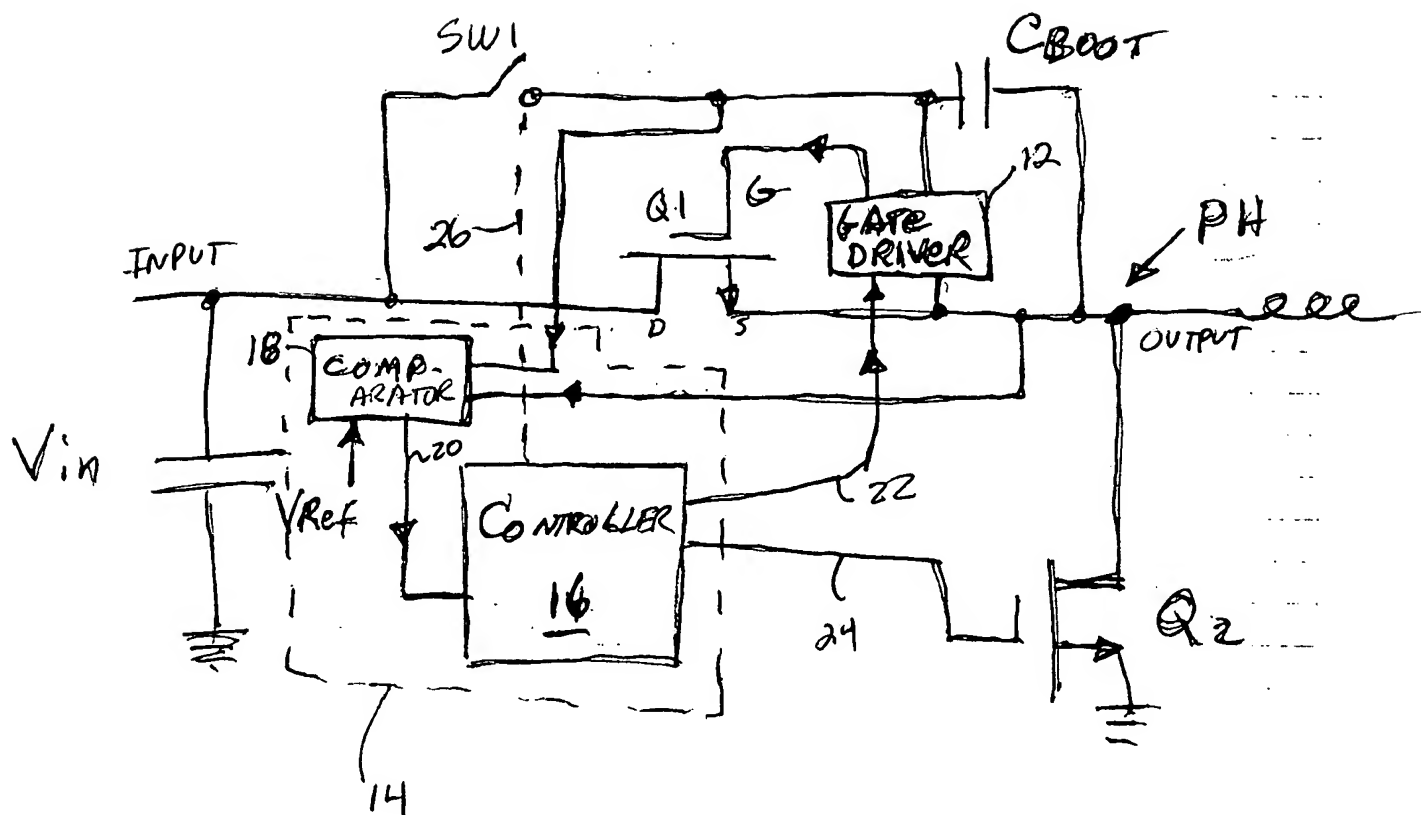 SW1
CBOOT
12
G
Q1
GATE
DRIVER
PH
26
INPUT
D
S
OUTPUT
18
COMP-
ARATOR
20
Vin
VRef
22
CONTROLLER
16
24
Q2
14